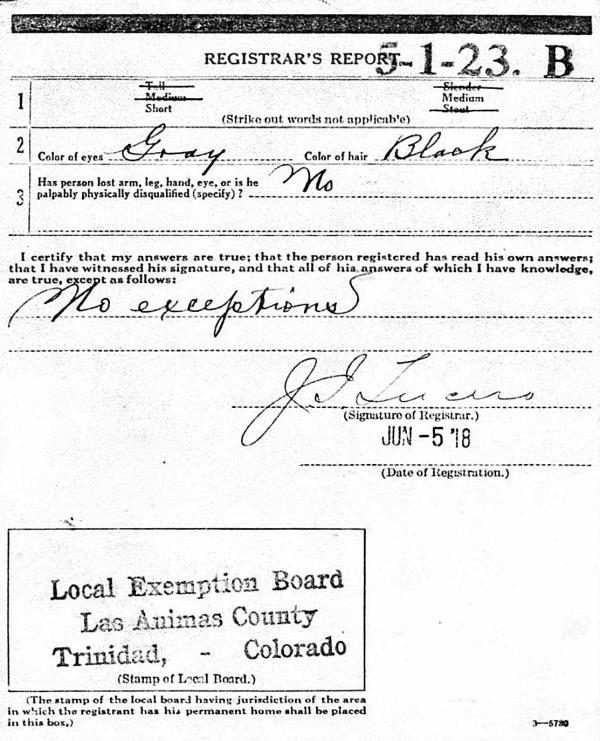 REGISTRAR'S REPORT
5-1-23. B
1
Tall
Medium
Short
Slender
Medium
Stout
(Strike out words not applicable)
2 Color of eyes Gray Color of hair Black
3 Has person lost arm, leg, hand, eye, or is he
palpably physically disqualified (specify)? No
I certify that my answers are true; that the person registered has read his own answers;
that I have witnessed his signature, and that all of his answers of which I have knowledge,
are true, except as follows:
No exceptions
J. I. Lucero
(Signature of Registrar.)
JUN -5 '18
(Date of Registration.)
Local Exemption Board
Las Animas County
Trinidad, - Colorado
(Stamp of Local Board.)
(The stamp of the local board having jurisdiction of the area
in which the registrant has his permanent home shall be placed
in this box.)
3—5730